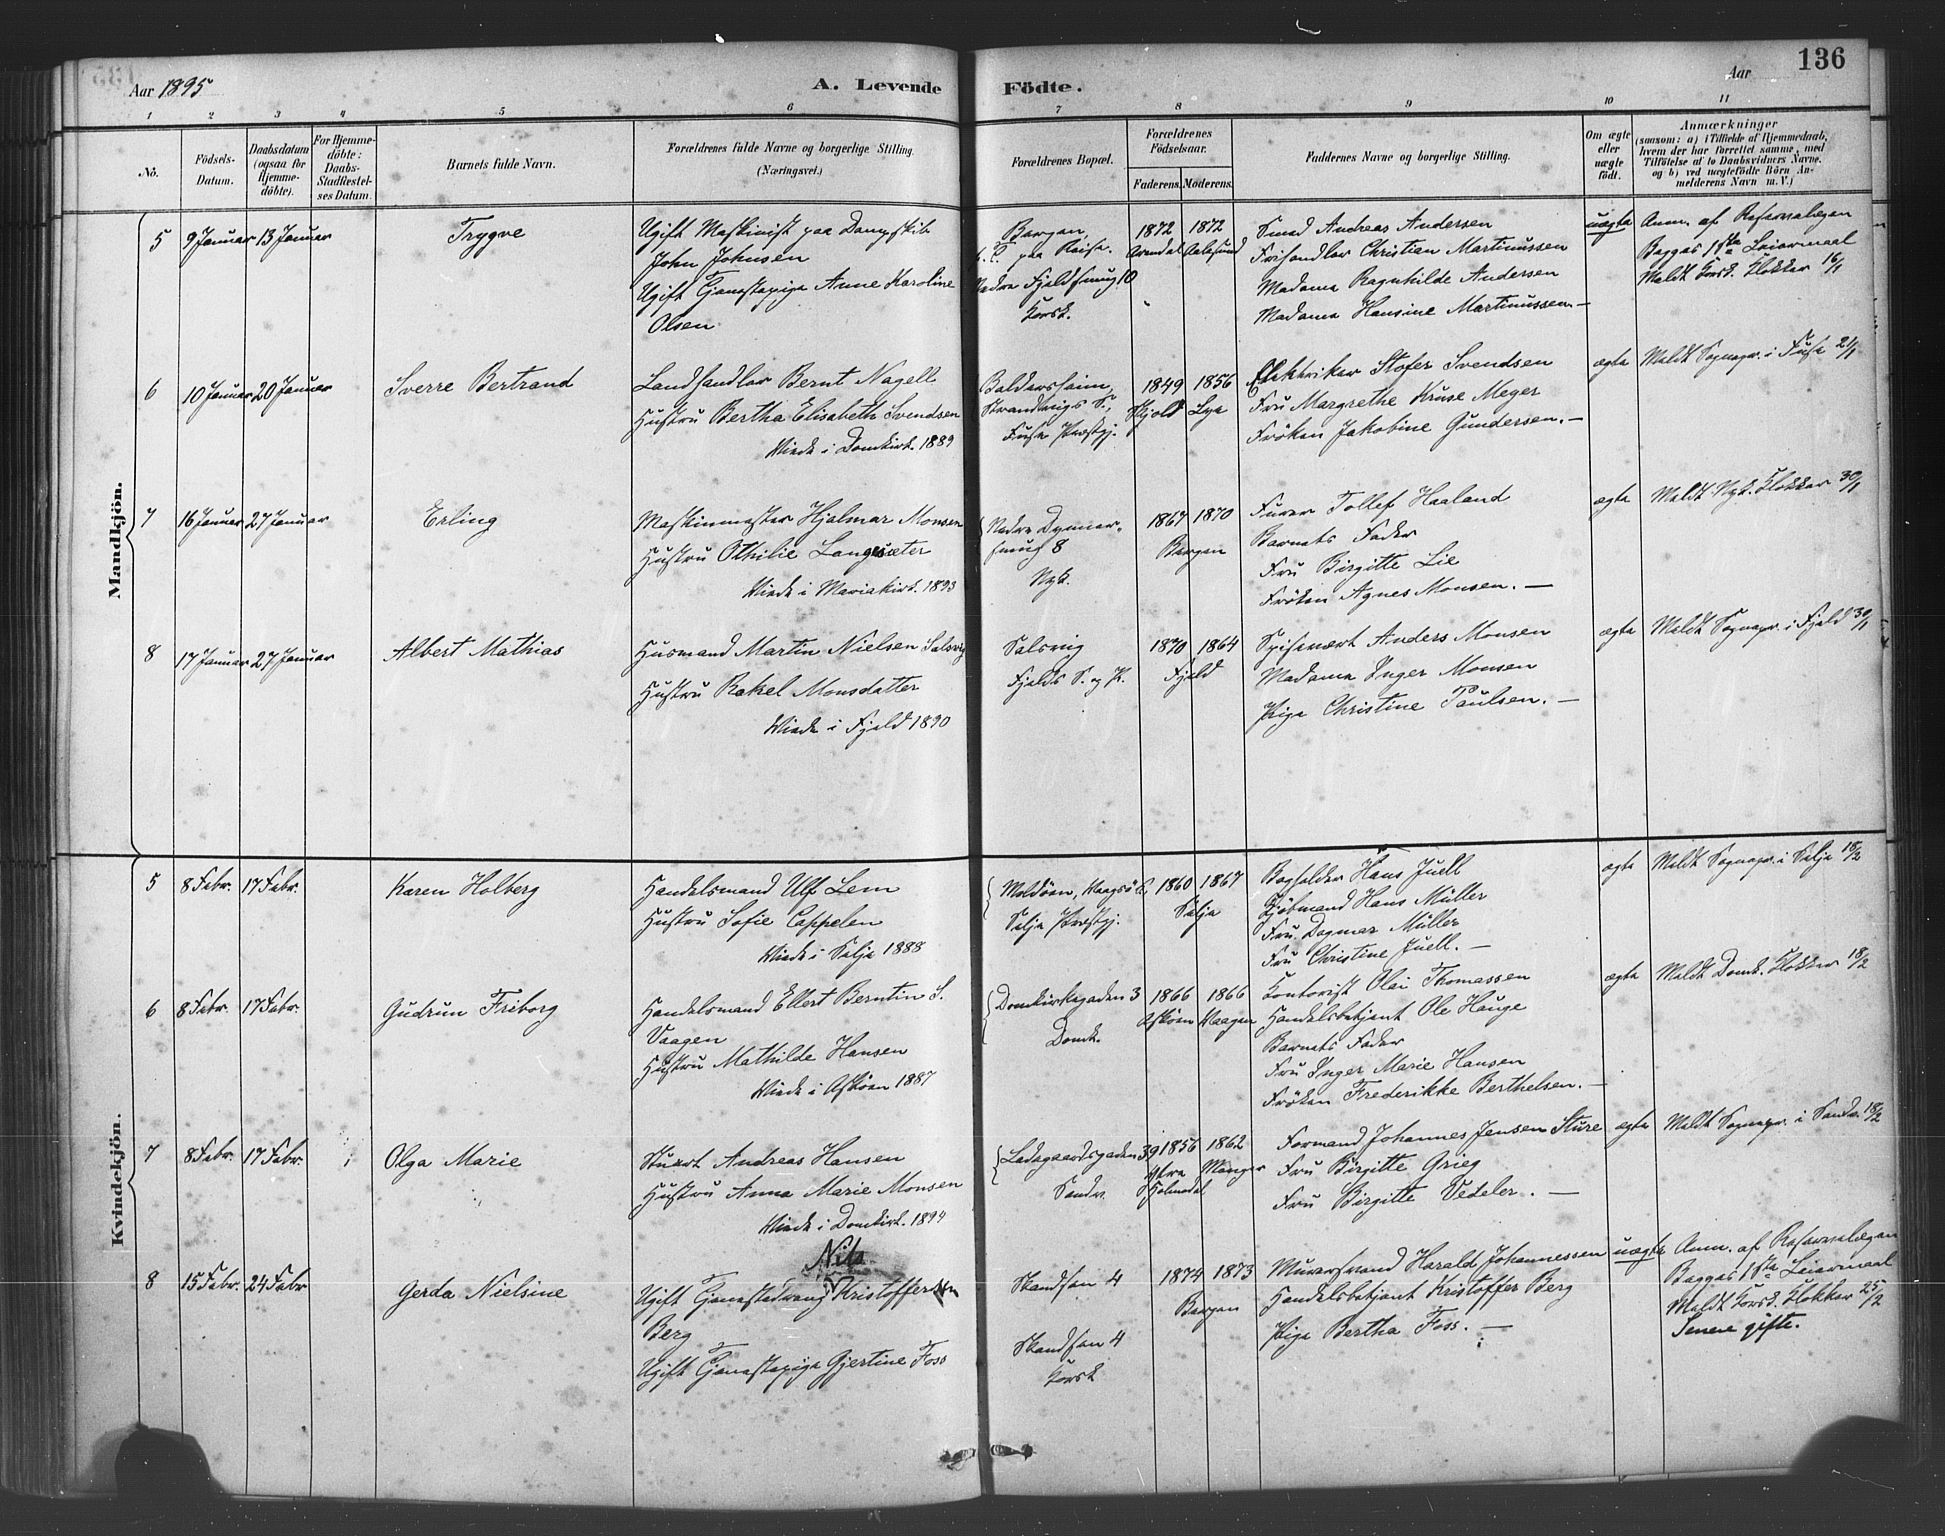 Aar 1895
A. Levende
Födte.
Aar
136
1 2 3 4 5 6 7 8 9 10 11
No.
Födsels-
Datum.
Daabsdatum
(ogsaa for
Hjemme-
döbte).
For Hjemme-
döbte:
Daabs-
Stadfæstel-
ses Datum.
Barnets fulde Navn.
Forældrenes fulde Navne og borgerlige Stilling.
(Næringsvei.)
Forældrenes Bopæl.
Forældrenes
Födselsaar.
Faderens. Moderens.
Faddernes Navne og borgerlige Stilling.
Om ægte
eller
uægte
födt.
Anmærkninger
(saasom: a) i Tilfælde af Hjemmedaab,
hvem der har forrettet samme, med
Tilföielse af to Daabsvidners Navne,
og b) ved uægtefödte Börn An-
melderens Navn m. V.)
Mandkjön.
5
9 Januar
13 Januar
Trygve
Ugift Maskinist paa Dampskib
John Johnsen
Ugift Tjenestepige Anne Karoline
Olsen
Bergen,
paa Reise.
Nedre Fjeldsmug 10
Korsk.
1872 1872
Arendal Aalesund
Smed Andreas Andersen
Fisehandler Christian Martinussen
Madame Ragnhilde Andersen
Madame Hansine Martinussen. —
uægte
Anm. af Reservelægen
Begges 1ste Leiermaal
Meldt Korsk. Klokker 16/1
6
10 Januar
20 Januar
Sverre Bertrand
Landhandler Bernt Nagell
Hustru Bertha Elisabeth Svendsen
Viede i Domkirk. 1889
Baldersheim,
Strandvigs S.,
Fuse Præstgj.
1849 1856
Skjold Lye
Elektriker Stofer Svendsen
Fru Margrethe Kruse Meger
Fröken Jakobine Gundersen. —
ægte
Meldt Sognepr. i Fuse 21/1
7
16 Januar
27 Januar
Erling
Maskinmester Hjalmar Monsen
Hustru Othilie Langesæter
Viede i Mariakirk. 1893
Nedre Dynner-
smug 8
Nyk.
1867 1870
Bergen
Furer Tollef Haaland
Barnets Fader
Fru Birgitte Lie
Fröken Agnes Monsen. —
ægte
Meldt Nyk. Klokker 30/1
8
17 Januar
27 Januar
Albert Mathias
Husmand Martin Nielsen Solsvig
Hustru Rakel Monsdatter
Viede i Fjeld 1890
Solsvig
Fjelds S. og P.
1870 1864
Fjeld
Spisevært Anders Monsen
Madame Inger Monsen
Pige Christine Paulsen. —
ægte
Meldt Sognepr. i Fjeld 30/1
Kvindekjön.
5
8 Febr.
17 Febr.
Karen Holberg
Handelsmand Ulf Lem
Hustru Sofie Cappelen
Viede i Selje 1888
Moldöen, Vaagsö S.
Selje Præstgj.
1860 1867
Selje
Bogholder Hans Juell
Kjöbmand Hans Müller
Fru Dagmar Müller
Fru Christine Juell. —
ægte
Meldt Sognepr. i Selje 18/2
6
8 Febr.
17 Febr.
Gudrun Friborg
Handelsmand Ellert Berntin S.
Vaagen
Hustru Mathilde Hansen
Viede i Asköen 1887
Domkirkegaden 3
Domk.
1866 1866
Asköen Vaagen
Kontorist Olai Thomassen
Handelsbetjent Ole Hauge
Barnets Fader
Fru Inger Marie Hansen
Fröken Frederikke Berthelsen. —
ægte
Meldt Domk. Klokker 18/2
7
8 Febr.
17 Febr.
Olga Marie
Stuert Andreas Hansen
Hustru Anna Marie Monsen
Viede i Domkirk. 1894
Ladegaardsgaden 39
Sandv.
1856 1862
Manger
Formand Johannes Jensen Sture
Fru Birgitte Grieg
Fru Birgitte Vedeler. —
ægte
Meldt Sognepr. i Sandv. 18/2
8
15 Febr.
24 Febr
Gerda Nielsine
Nils
Ugift Tjenestedreng Kristoffersen
Berg
Ugift Tjenestepige Gjertine Foss
Skandsen 4
Skandsen 4
Korsk
1874 1873
Bergen
Murersvend Harald Johannessen
Handelsbetjent Kristoffer Berg
Pige Bertha Foss. —
uægte
Anm. af Reservelægen
Begges 1ste Leiermaal
Meldt Korsk. Klokker 25/2
Senere gifte.